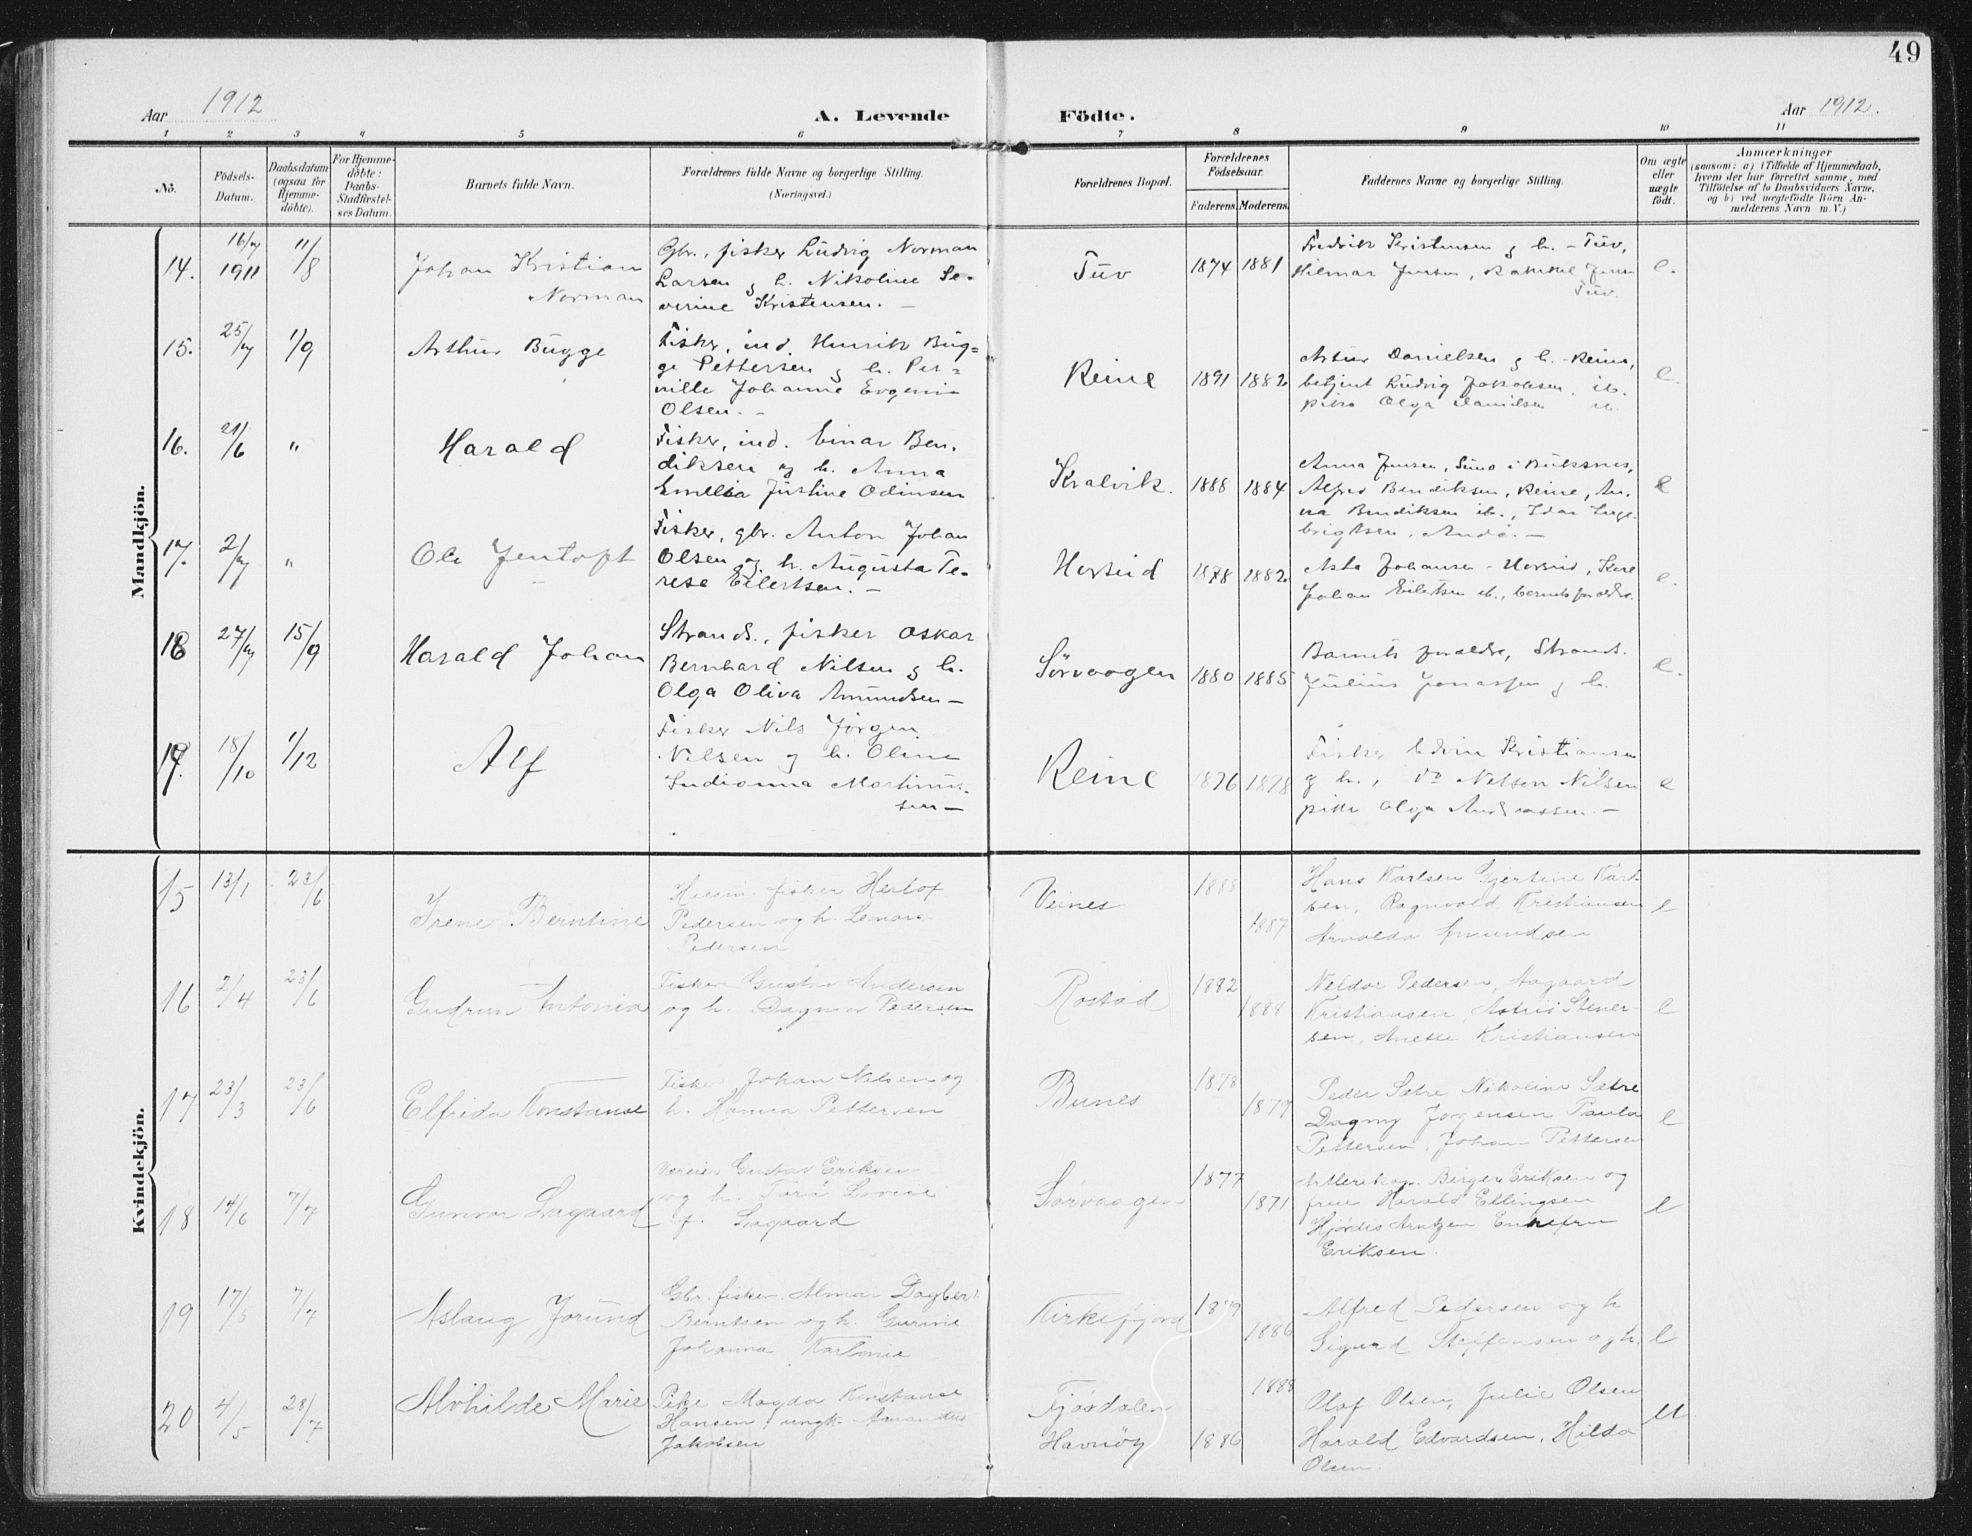 49
Aar 1912
A. Levende
Fødte.
Aar 1912.
1 2 3 4 5 6 7 8 9 10 11
No.
Födsels-
Datum.
Daabsdatum
(ogsaa for
Hjemme-
döbte).
For Hjemme-
döbte:
Daabs-
Stadfæstel-
ses Datum.
Barnets fulde Navn.
Forældrenes fulde Navne og borgerlige Stilling.
(Næringsvei.)
Forældrenes Bopæl.
Forældrenes
Födselsaar.
Faderens. Moderens.
Faddernes Navne og borgerlige Stilling.
Om ægte
eller
uægte
födt.
Anmærkninger
(saasom: a) i Tilfælde af Hjemmedaab,
hvem der har forrettet samme, med
Tilföielse af to Daabsvidners Navne,
og b) ved uægtefödte Börn An-
melderens Navn m. V.)
Mandkjön.
14.
1911
11/8
Johan Kristian
Norman
Gbr., fisker Ludvig Norman
Larsen og h. Nikoline Se-
verine Kristensen. —
Tuv
1874 1881
Fredrik Kristensen og h. - Tuv,
Hilmar Jensen, Jensen
Tuv.
e.
15.
25/7
1/9
Arthur Bugge
Fisker, ind. Henrik Bug=
ge Pettersen og h. Per=
nille Johanne Evgenie
Olsen. -
Reine
1891 1882
Artur Danielsen og h. - Reine,
betjent Ludvig Jakobsen ib.
pike Olga Danielsen ib.
e.
16.
21/6
"
Harald
Fisker, ind. Einar Ben-
diksen og h. Anna
Emelia Justine Odinsen
Kvalvik.
1888 1884
Anna Jensen, Sund i Buksnes,
Alfred Bendiksen, Reine, An-
na Bendiksen ib., Idar Inge-
brigtsen, Andö. —
e
17.
2/7
"
Ole Jentoft
Fisker, gbr. Anton Johan
Olsen og h. Augusta Te-
rese Eilertsen. —
Herseid
1878 1882
Asta Johansen - Herseid, Karl
Johan Eilertsen ib., barnets forældre.
e.
18
27/7
15/9
Harald Johan
Strands., fisker Oskar
Bernhard Nilsen og h.
Olga Oliva Amundsen —
Sørvaagen
1880 1885
Barnets forældre, Strands.
Julius Jonassen og h.
e.
19.
18/10
1/12
Alf
Fisker Nils Jörgen
Nilsen og h. Oline
Indianna Martinus-
sen —
Reine
1876 1878
Fisker Edvin Kristiansen
og h., do Nelson Nilsen
pike Olga Andreassen. —
e
Kvindekjön.
15
13/1
23/6
Irene Berntine
Husm. fisker Herlof
Pedersen og h. Lenora
Pedersen
Veines
1888
1887
Hans Karlsen Gjertine Karl-
sen, Ragnvald Kristiansen
Arnolda Amundsen
e
16
2/4
23/6
Gudrun Antonia
Fisker Gustav Andersen
og h. Dagmar Pedersen
Rostad
1882
1888
Neldor Pedersen, Aagaard
Kristiansen, Astrid Stener-
sen, Anette Kristiansen
e
17
23/3
23/6
Elfrida Konstanse
Fisker Johan Nilsen og
h. Hanna Pettersen
Bunes
1878
1879
Peder Sætre Nikoline Sætre
Dagny Jørgensen Paula
Pettersen, Johan Pettersen
e
18
14/6
7/7
Gunvor Lagaard
Væreier Gustav Eriksen
og h.
f. Lagaard
Sørvaagen
1877
1871
Birger Eriksen og
frue Harald Ellingsen
Hjördis Arntzen Enkefru
Eriksen.
e
19
17/5
7/7
Aslaug Jorund
Gbr. fisker Almar Dagbert
Berntsen og h. Gurine
Johanna Karlonia
Kirkefjord
1879
1886
Alfred Pedersen og h
Sigurd Steffensen og h.
e
20
4/5
28/7
Alvhilde Marie
Pike Magda Konstanse
Hansen, ungk. Amandus
Jakobsen
Fjørdalen
Havnøy
1888
1886
Olaf Olsen, Julie Olsen
Harald Edvardsen, Hilda
Olsen
u